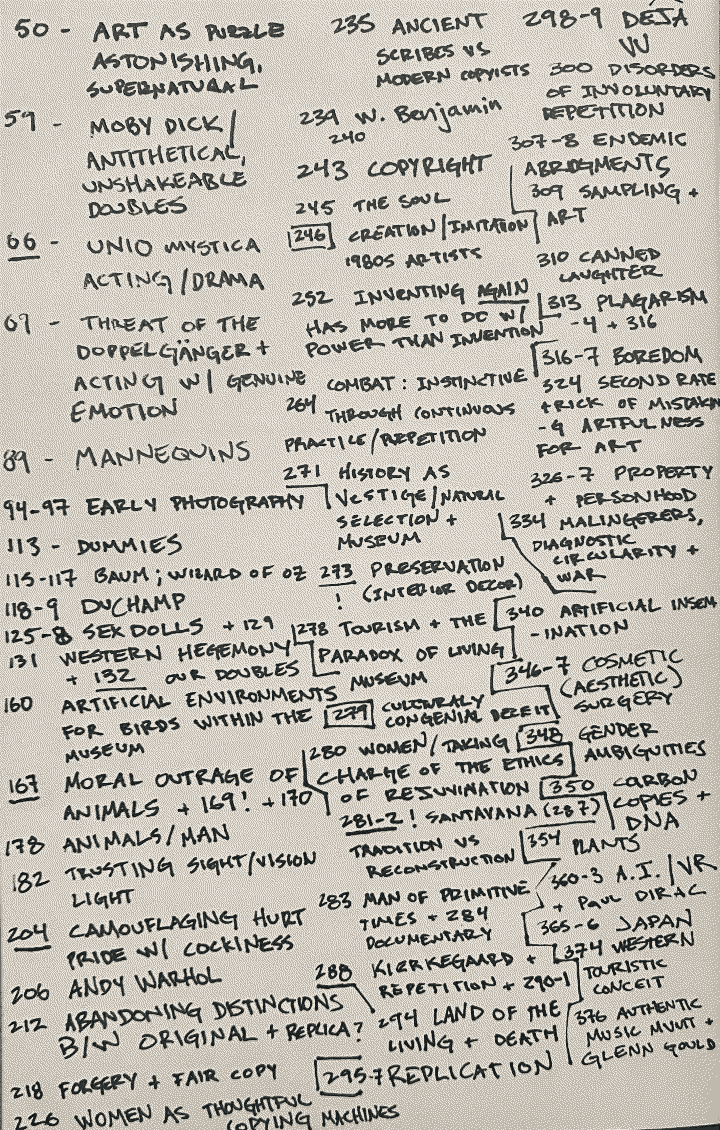 50 - ART AS PUZZLE
ASTONISHING,
SUPERNATURAL
59 - MOBY DICK/
ANTITHETICAL,
UNSHAKEABLE
DOUBLES
66 - UNIO MYSTICA
ACTING/DRAMA
69 - THREAT OF THE
DOPPELGÄNGER +
ACTING W/ GENUINE
EMOTION
89 - MANNEQUINS
94-97 EARLY PHOTOGRAPHY
113 - DUMMIES
115-117 BAUM; WIZARD OF OZ
118-9 DUCHAMP
125-8 SEX DOLLS + 129
131 WESTERN HEGEMONY
+ 132 OUR DOUBLES
160 ARTIFICIAL ENVIRONMENTS
FOR BIRDS WITHIN THE
MUSEUM
167 MORAL OUTRAGE OF
ANIMALS + 169! + 170
178 ANIMALS/MAN
182 TRUSTING SIGHT/VISION
LIGHT
204 CAMOUFLAGING HURT
PRIDE W/ COCKINESS
206 ANDY WARHOL
212 ABANDONING DISTINCTIONS
B/W ORIGINAL + REPLICA?
218 FORGERY + FAIR COPY
226 WOMEN AS THOUGHTFUL
COPYING MACHINES
235 ANCIENT
SCRIBES VS
MODERN COPYISTS
239 W. Benjamin
240
243 COPYRIGHT
245 THE SOUL
246 CREATION/IMITATION
1980S ARTISTS
252 INVENTING AGAIN
HAS MORE TO DO W/
POWER THAN INVENTION
264 COMBAT: INSTINCTIVE
THROUGH CONTINUOUS
PRACTICE/REPETITION
271 HISTORY AS
VESTIGE/NATURAL
SELECTION +
MUSEUM
273 PRESERVATION
! (INTERIOR DECOR)
278 TOURISM + THE
PARADOX OF LIVING
MUSEUM
279 CULTURALY
CONGENIAL DECEIT
280 WOMEN/TAKING
CHARGE OF THE ETHICS
OF REJUVINATION
281-2! SANTAYANA (287)
TRADITION VS
RECONSTRUCTION
283 MAN OF PRIMITIVE
TIMES + 284
DOCUMENTARY
288 KIERKEGAARD +
REPETITION + 290-1
294 LAND OF THE
LIVING + DEATH
295-7 REPLICATION
298-9 DEJA
VU
300 DISORDERS
OF INVOLUNTARY
REPETITION
307-8 ENDEMIC
ABRIDGMENTS
309 SAMPLING +
ART
310 CANNED
LAUGHTER
313 PLAGARISM
-4 + 316
316-7 BOREDOM
324 SECOND RATE
TRICK OF MISTAKIN
-G ARTFULNESS
FOR ART
326-7 PROPERTY
+ PERSONHOOD
334 MALINGERERS,
DIAGNOSTIC
CIRCULARITY +
WAR
340 ARTIFICIAL INSEM
-INATION
346-7 COSMETIC
(AESTHETIC)
SURGERY
348 GENDER
AMBIGUITIES
350 CARBON
COPIES +
DNA
354 PLANTS
360-3 A.I./VR
+ PAUL DIRAC
365-6 JAPAN
374 WESTERN
TOURISTIC
CONCEIT
376 AUTHENTIC
MUSIC MVMT +
GLENN GOULD